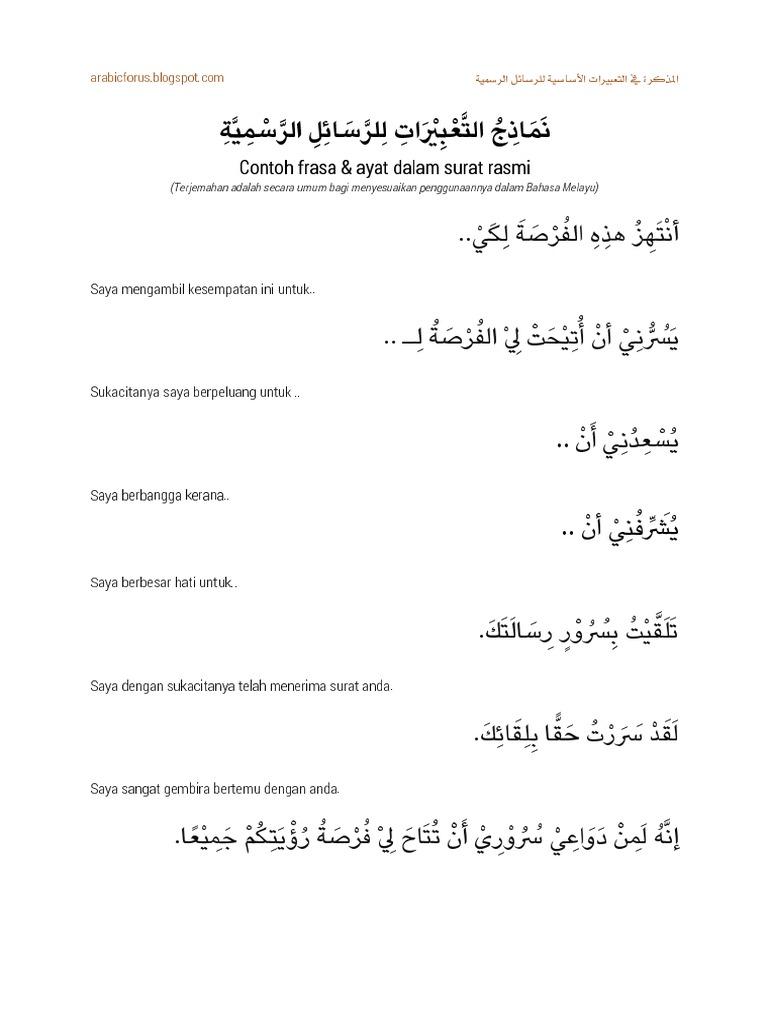 arabicforus.blogspot.com
المذكرة في التعبيرات الأساسية للرسائل الرسمية
نَمَاذِجُ التَّعْبِيْرَاتِ لِلرَّسَائِلِ الرَّسْمِيَّةِ
Contoh frasa & ayat dalam surat rasmi
(Terjemahan adalah secara umum bagi menyesuaikan penggunaannya dalam Bahasa Melayu)
أَنْتَهِزُ هذِهِ الفُرْصَةَ لِكَيْ..
Saya mengambil kesempatan ini untuk..
يَسُرُّنِيْ أنْ أُتِيْحَتْ لِيْ الفُرْصَةُ لِــ ..
Sukacitanya saya berpeluang untuk ..
يُسْعِدُنِيْ أَنْ ..
Saya berbangga kerana..
يُشَرِّفُنِيْ أنْ ..
Saya berbesar hati untuk..
تَلَقَّيْتُ بِسُرُوْرٍ رِسَالَتَكَ.
Saya dengan sukacitanya telah menerima surat anda.
لَقَدْ سَرَرْتُ حَقًّا بِلِقَائِكَ.
Saya sangat gembira bertemu dengan anda.
إنَّهُ لَمِنْ دَوَاعِيْ سُرُوْرِيْ أَنْ تُتَاحَ لِيْ فُرْصَةُ رُؤْيَتِكُمْ جَمِيْعًا.